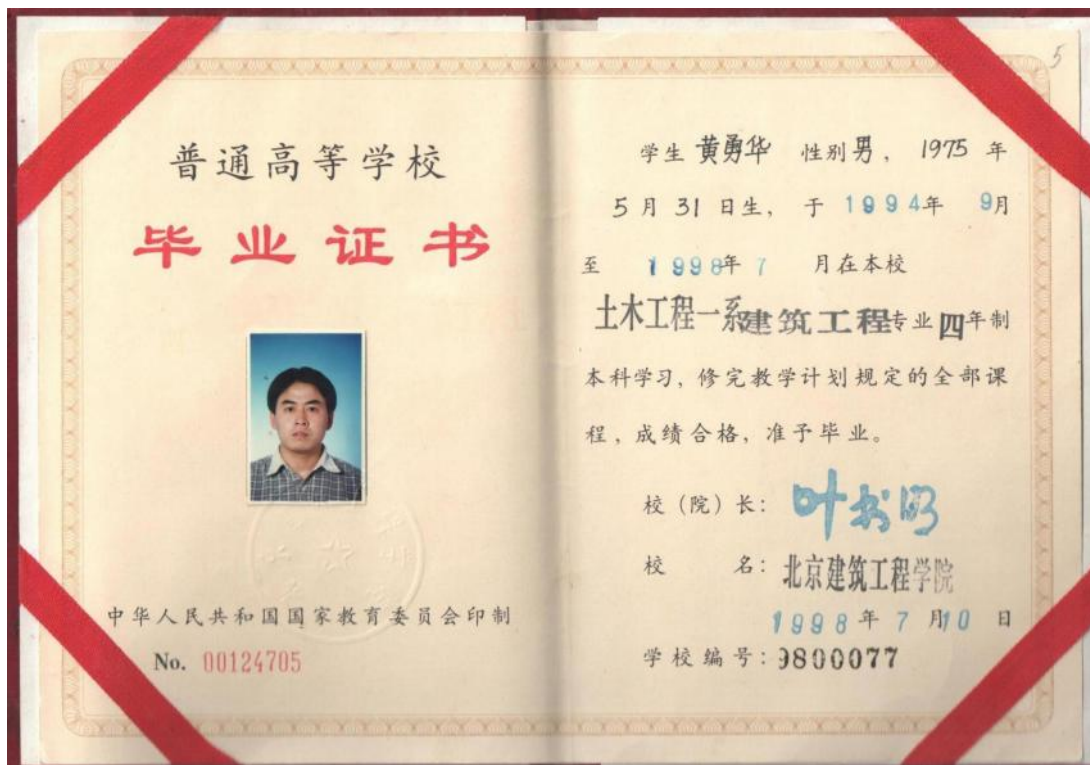 普通高等学校
毕业证书
中华人民共和国国家教育委员会印制
No. 00124705
5
学生 黄勇华 性别男，1975 年
5 月 31 日生，于 1994年 9月
至 1998年 7 月在本校
土木工程一系建筑工程专业四年制
本科学习，修完教学计划规定的全部课
程，成绩合格，准予毕业。
校（院）长：叶书明
校 名：北京建筑工程学院
1998 年 7 月 10 日
学校编号：9800077